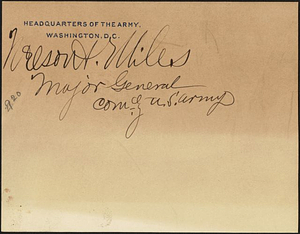 HEADQUARTERS OF THE ARMY,
WASHINGTON, D.C.
Nelson A. Miles
Major General
Com'g U.S. Army